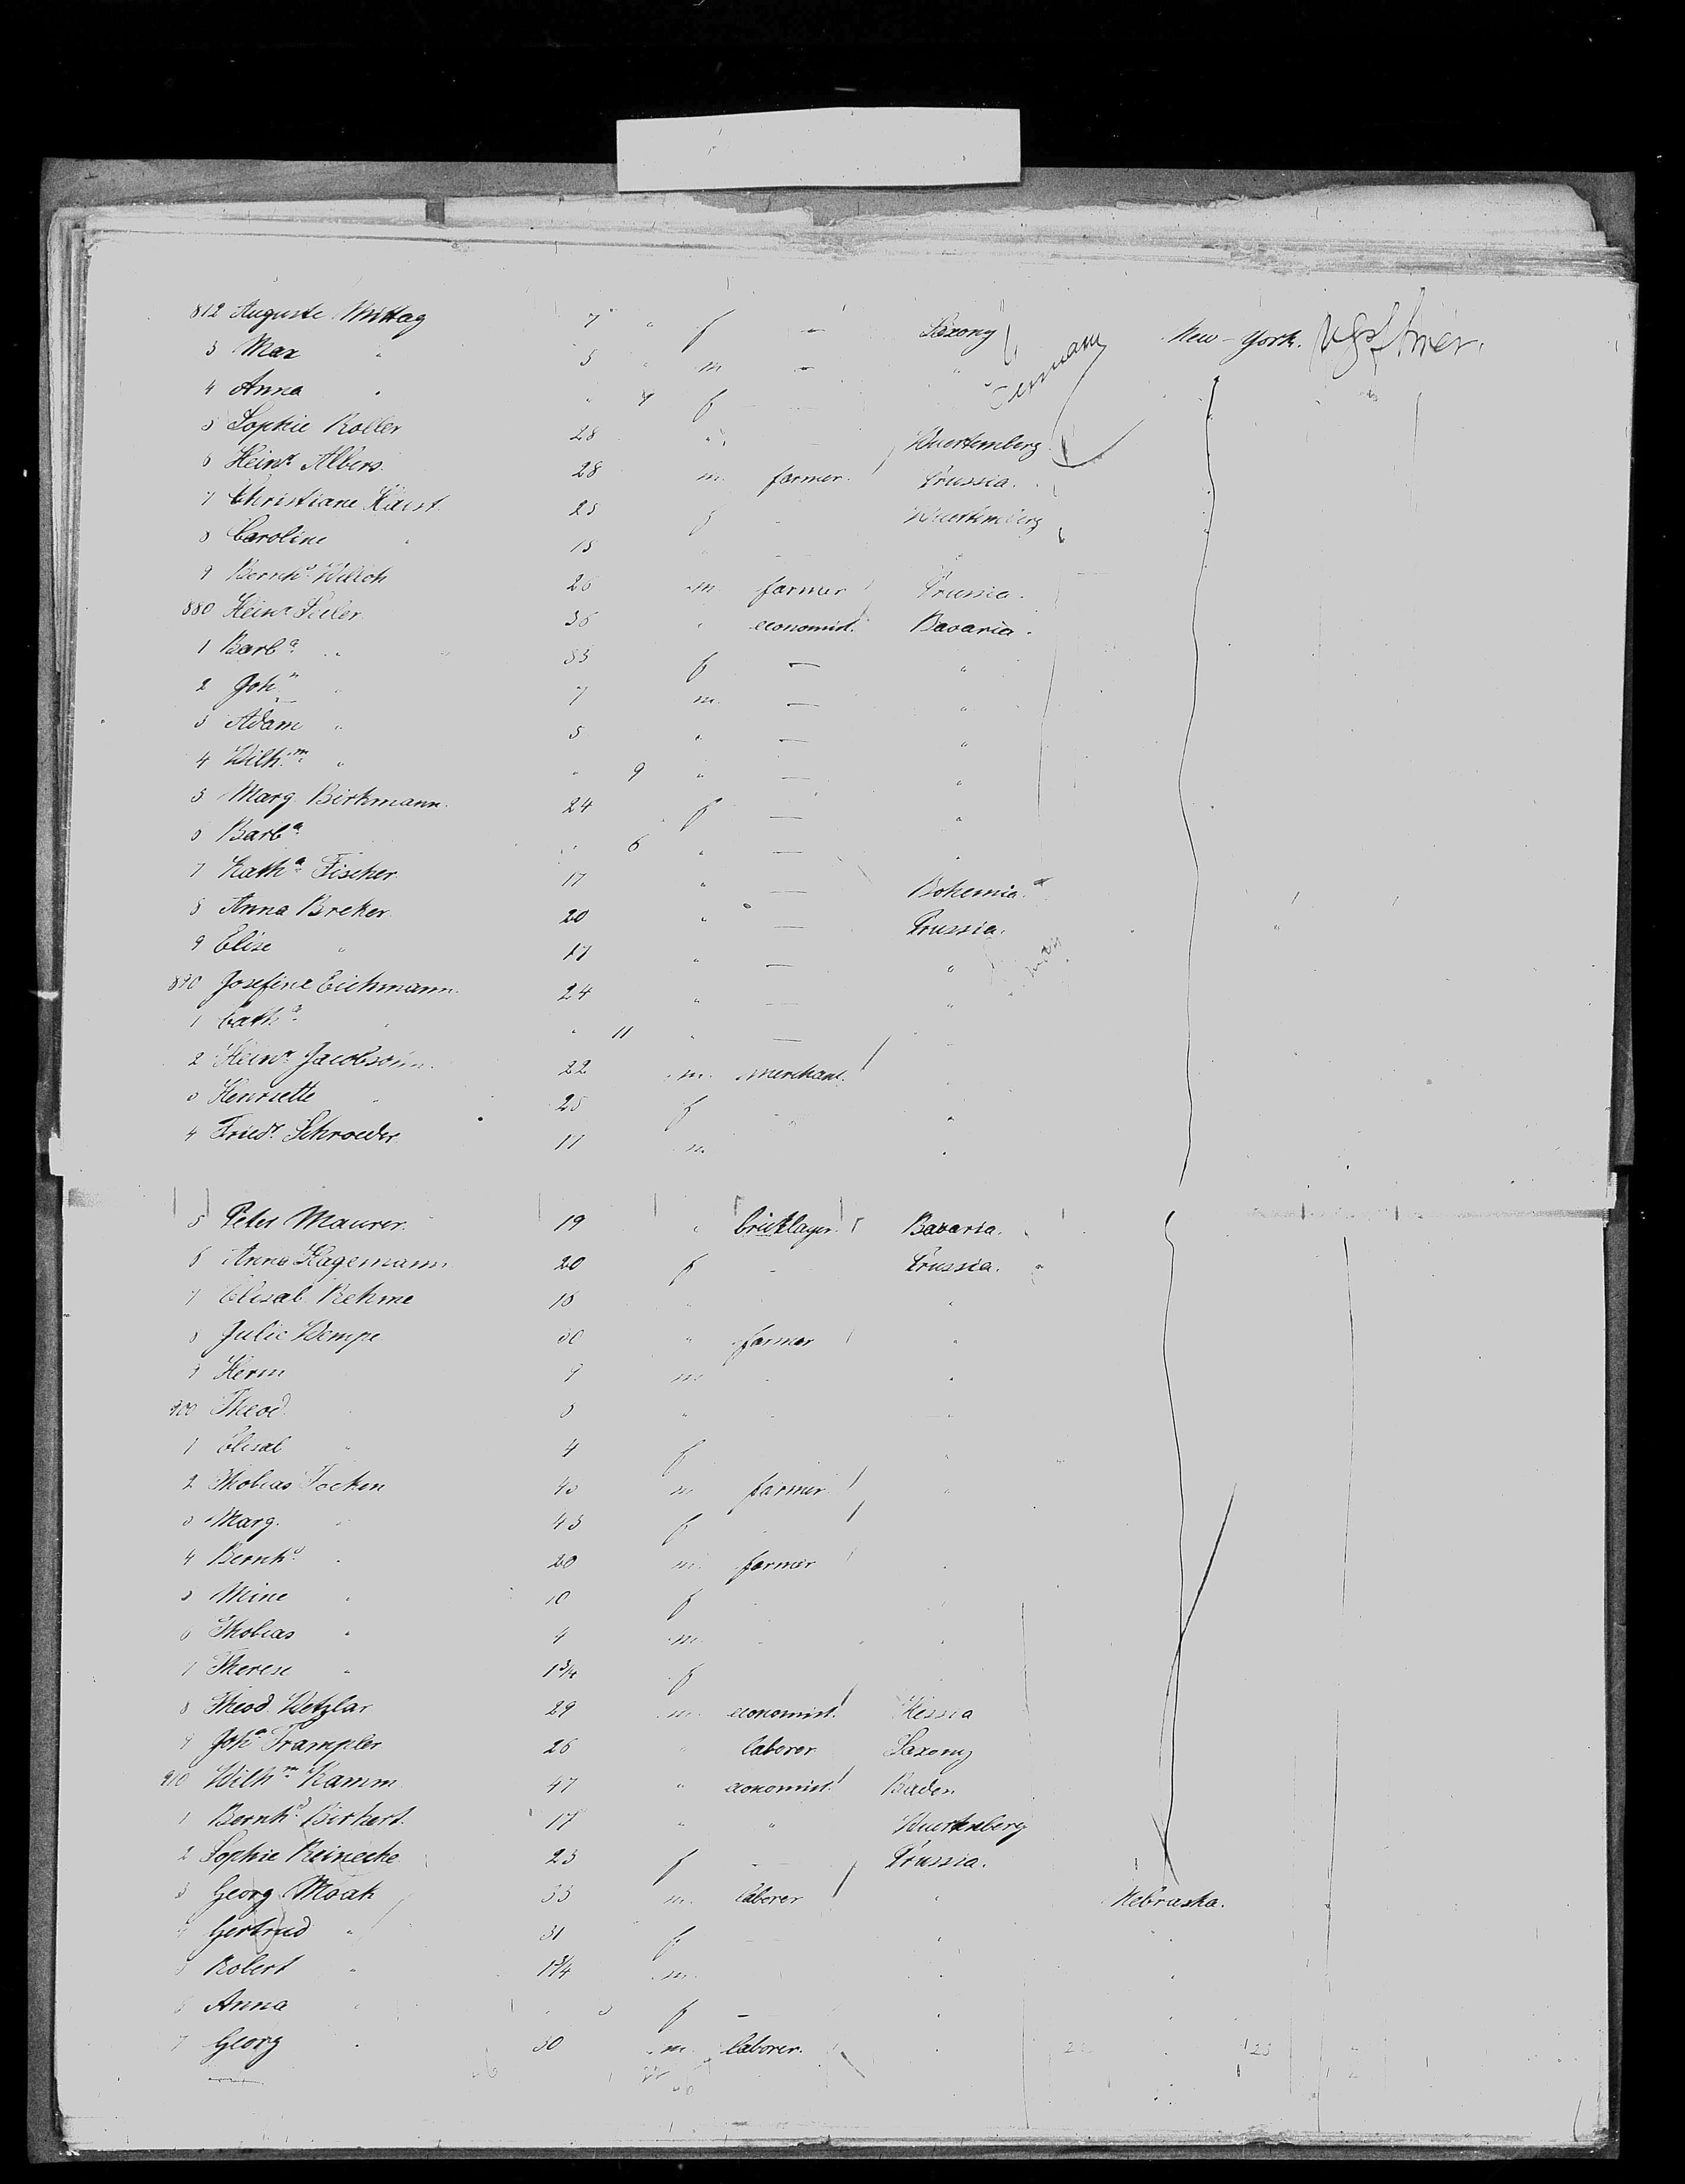 812 Auguste Mittag 7 " f — Saxony New-York.
3 Max " 5 " m — "
4 Anna " " 4 f German
5 Sophie Roller 28 " — Wuertemberg
6 Heinr. Albers 28 m. farmer. Prussia.
7 Christiane Kaist. 25 f - Wuertemberg
8 Caroline " 15 " — "
9 Bernhd. Willich 26 m. farmer Prussia.
880 Heinr. 36 " economist. Bavaria.
1 Barba. " 33 f — "
2 John. " 7 m. — "
3 Adam " 5 " — "
4 Wilhm. " " 9 " — "
5 Marg. Birkmann. 24 f — "
6 Barba. " 6 " — "
7 Katha. Fischer 17 " — Bohemia.
8 Anna Breker. 20 " — Prussia.
9 Elise " 17 " — "
890 Josefine Eichmann. 24 " — "
1 Catha. " " 11 " — "
2 Heinr. Jacobsohn. 22 m. merchant. "
3 Henriette " 25 f "
4 Friedr. Schroeder 17 m "
5 Peter Maurer. 19 " bricklayer. Bavaria.
6 Anna Hagemann. 20 f - Prussia.
7 Elisab. Rehme 18 " "
8 Julie Wempe 30 " farmer "
9 Herm 9 m "
900 Theod. "
1 Elisab " 4 f "
2 Thobias Focken m farmer "
3 Marg. " 43 f
4 Bernhd. " 20 m. farmer "
5 Mine " 10 f
6 Thobias " 4 m.
7 Therese " 1 3/4 f
8 Theod. Wetzlar 29 m. economist. Hessia
9 Joha. Trampler 26 " laborer Saxony
910 Wilhm. Kamm 47 " economist. Baden
1 Bernhd. Birkert. 17 " " Wuertenberg
2 Sophie Reinecke 23 f — Prussia.
3 Georg Maak 33 m. laborer " Nebraska.
4 Gertrud " 31 f "
5 Robert " 1 3/4 m. "
6 Anna " f - "
7 Georg " 30 m. laborer. "